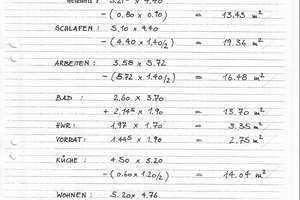 x 4.40
- (0.80 x 0.70) = 13.43 m²
SCHLAFEN : 5.10 x 4.40
- (4.40 x 1.40/2) = 19.36 m²
ARBEITEN : 3.58 x 5.72
- (5.72 x 1.40/2) = 16.48 m²
BAD : 2.60 x 3.70
+ 2.14⁵ x 1.90 = 13.70 m²
HWR : 1.97 x 1.70 = 3.35 m²
VORRAT : 1.44⁵ x 1.90 = 2.75 m²
KÜCHE : 4.50 x 3.20
- (0.60 x 1.20/2) = 14.04 m²
WOHNEN : 5.20 x 4.76